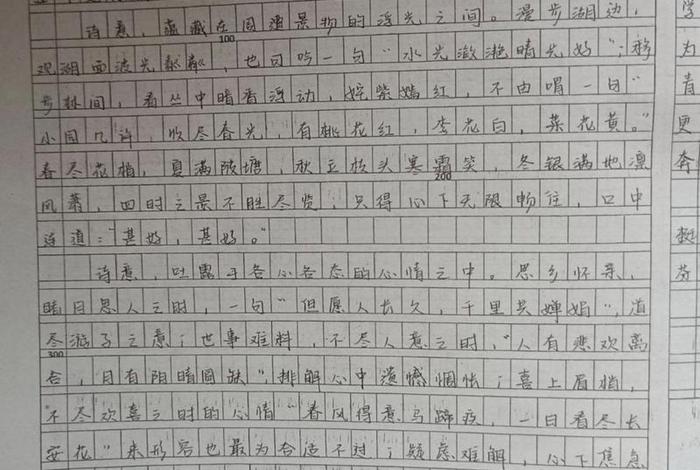 诗意，蕴藏在周遭景物的浮光之间。漫步湖边，
100
观湖面波光粼粼，也可吟一句“水光潋滟晴光好”；移
步林间，看丛中暗香浮动，姹紫嫣红，不由唱一句“
小园几许，收尽春光，有桃花红，李花白，菜花黄。”
春尽花梢，夏满陂塘，秋立枝头寒霜笑，冬银满地凛
200
风萧，四时之景不胜尽赏；只得心下无限畅往，口中
连道：“甚好，甚好。”
诗意，吐露于各心各态的心情之中。思乡怀亲，
睹月思人之时，一句“但愿人长久，千里共婵娟”，道
尽游子之意；世事难料，不尽人意之时，“人有悲欢离
300
合，月有阴晴圆缺”排解心中遗憾惆怅；喜上眉梢，
不尽欢喜之时的心情“春风得意马蹄疾，一日看尽长
安花”来形容也最为合适不过；疑虑难解，心下焦急
学
为
青
更
奔
芬